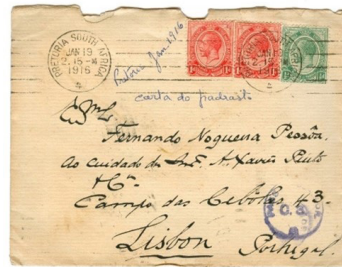 PRETORIA SOUTH AFRICA
JAN 19
2 15 - M
1916
Pretoria Jan 1916
carta do padrasto
Fernando Nogueira Pessôa,
ao cuidado de A. Xavier Pinto
& Cª
Campo das Cebolas 43
Lisbon
Portugal.